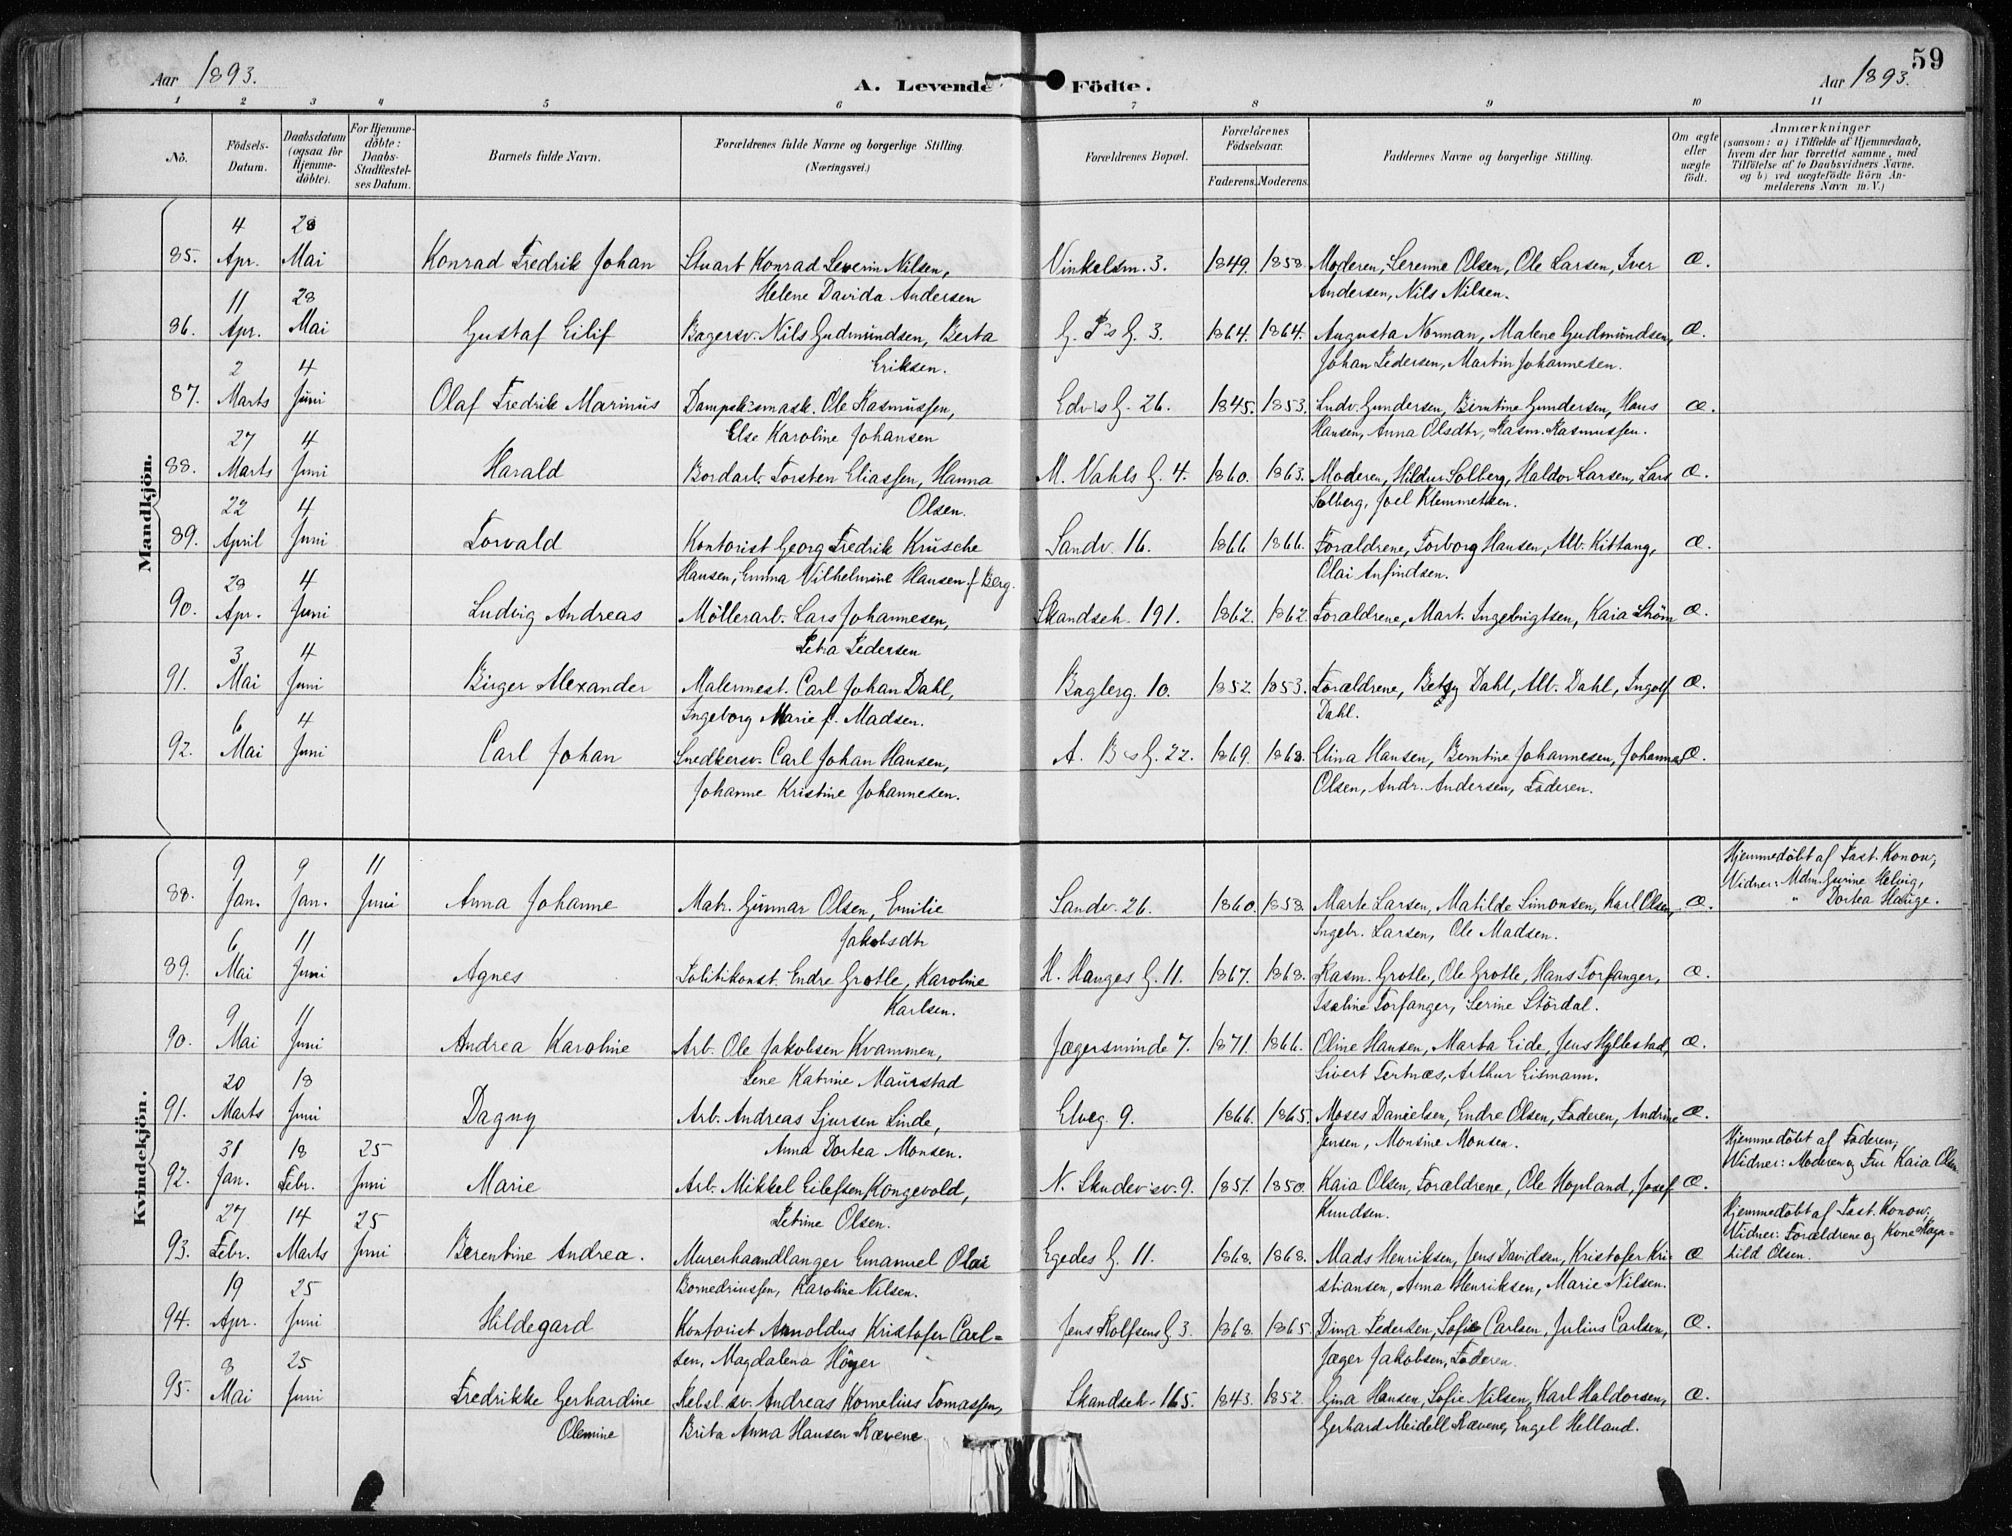 59
Aar 1893.
A. Levende Födte.
Aar 1893.
1 2 3 4 5 6 7 8 9 10 11
No.
Födsels-Datum.
Daabsdatum (ogsaa for Hjemme-döbte).
For Hjemme-döbte: Daabs-Stadfæstel-ses Datum.
Barnets fulde Navn.
Forældrenes fulde Navne og borgerlige Stilling. (Næringsvei.)
Forældrenes Bopæl.
Forældrenes Födselsaar.
Faderens. Moderens.
Faddernes Navne og borgerlige Stilling.
Om ægte eller uægte födt.
Anmærkninger
(saasom: a) i Tilfælde af Hjemmedaab,
hvem der har forrettet samme, med
Tilföielse af to Daabsvidners Navne.
og b) ved uægtefödte Börn An-
melderens Navn m. V.)
Mandkjön.
4 28
85. Apr. Mai Konrad Fredrik Johan Stuart Konrad Severin Nilsen, Vinkelsm. 3. 1849. 1858. Moderen, Serenne Olsen, Ole Larsen, Iver Æ.
Helene Davida Andersen Andersen, Nils Nilsen.
11 28
86. Apr. Mai Gustaf Eilif Bagersv. Nils Gudmundsen, Berta G. P's G. 3. 1864. 1864. Augusta Norman, Malene Gudmundsen, Æ.
Eriksen. Johan Pedersen, Martin Johannesen.
2 4
87. Marts Juni Olaf Fredrik Marinus Dampsk:smask. Ole Rasmussen, Edv's G. 26. 1845. 1853. Ludv. Gundersen, Berntine Gundersen, Hans Æ.
Else Karoline Johansen Hansen, Anna Olsdtr, Rasm. Rasmussen.
27 4
88. Marts Juni Harald Bordarb. Torsten Eliassen, Hanna M. Vahls G. 4. 1860. 1863. Moderen, Hildur Solberg, Haldor Larsen, Lars Æ.
Olsen. Solberg, Joel Klemmetsen.
22 4
89. April Juni Torvald Kontorist Georg Fredrik Krusche Sandv. 16. 1866 1866. Forældrene, Torborg Hansen, Alb. Kittang, Æ.
Hansen, Emma Vilhelmine Hansen f. Berg. Olai Anfindsen.
29 4
90. Apr. Juni Ludvig Andreas Möllerarb. Lars Johannesen, Skandseh. 191. 1862. 1862. Forældrene, Mart. Ingebrigtsen, Kaia Ström Æ.
Petra Pedersen
3 4
91. Mai Juni Birger Alexander Malermest. Carl Johan Dahl, Bagberg. 10. 1852. 1853. Forældrene, Betsy Dahl, Alb. Dahl, Ingolf Æ.
Ingeborg Marie f. Madsen. Dahl.
6 4
92. Mai Juni Carl Johan Snedkersv. Carl Johan Hansen, A. B's G. 22. 1869. 1868. Elina Hansen, Berntine Johannesen, Johannes Æ.
Johanne Kristine Johannesen. Olsen, Andr. Andersen, Faderen.
Kvindekjön.
9 9 11 Hjemmedöbt af Past. Konow,
88. Jan. Jan. Juni Anna Johanne Matr. Gunnar Olsen, Emilie Sandv. 26. 1860. 1858. Marte Larsen, Matilde Simonsen, Karl Olsen, Æ. Vidner: Mdm. Gurine Helvig,
Jakobsdtr Ingebr. Larsen, Ole Madsen. " Dortea Hauge.
6 11
89. Mai Juni Agnes Politikonst. Endre Grotle, Karoline H. Hauges G. 11. 1867. 1868. Rasm. Grotle, Ole Grotle, Hans Torfanger, Æ.
Karlsen. Isaline Torfanger, Serine Stördal.
9 11
90. Mai Juni Andrea Karoline Arb. Ole Jakobsen Kvammen, Jægersminde 7. 1871. 1866. Oline Hansen, Marta Eide, Jens Hyllestad, Æ.
Lene Katrine Maurstad Sivert Tertnæs, Arthur Eismann.
20 18
91. Marts Juni Dagny Arb. Andreas Sjursen Linde, Elveg. 9. 1866. 1865. Moses Danielsen, Endre Olsen, Faderen, Andrine Æ.
Anna Dortea Monsen. Jensen, Monsine Monsen.
31 18 25 Hjemmedöbt af Faderen,
92. Jan. Febr. Juni Marie Arb. Mikkel Eilefsen Kongevold, N. Skudev:sv. 9. 1851. 1850. Kaia Olsen, Forældrene, Ole Hopland, Josef Æ. Vidner: Moderen og Fru Kaia Olsen.
Petrine Olsen. Knudsen.
27 14 25 Hjemmedöbt af Past. Konow,
93. Febr. Marts Juni Berentine Andrea. Murerhaandlanger Emanuel Olai Egedes G. 11. 1868. 1868. Mads Henriksen, Jens Davidsen, Kristofer Kri- Æ Vidner: Forældrene og Kone Ragn-
Bomedriussen, Karoline Nilsen. stiansen, Anna Henriksen, Marie Nilsen. hild Olsen.
19 25
94. Apr. Juni Hildegard Kontorist Arnoldus Kristofer Carl= Jens Rolfsens G 3. 1868. 1865 Dina Pedersen, Sofie Carlsen, Julius Carlsen, Æ.
sen, Magdalena Höyer Jæger Jakobsen, Faderen.
8 25
95. Mai Juni Fredrikke Gerhardine Rebsl.sv. Andreas Kornelius Tomassen, Skandseh. 165. 1843. 1852. Gina Hansen, Sofie Nilsen, Karl Haldorsen, Æ.
Olemine Brita Anna Hansen Rævene. Gerhard Meidell Rævene, Engel Helland.